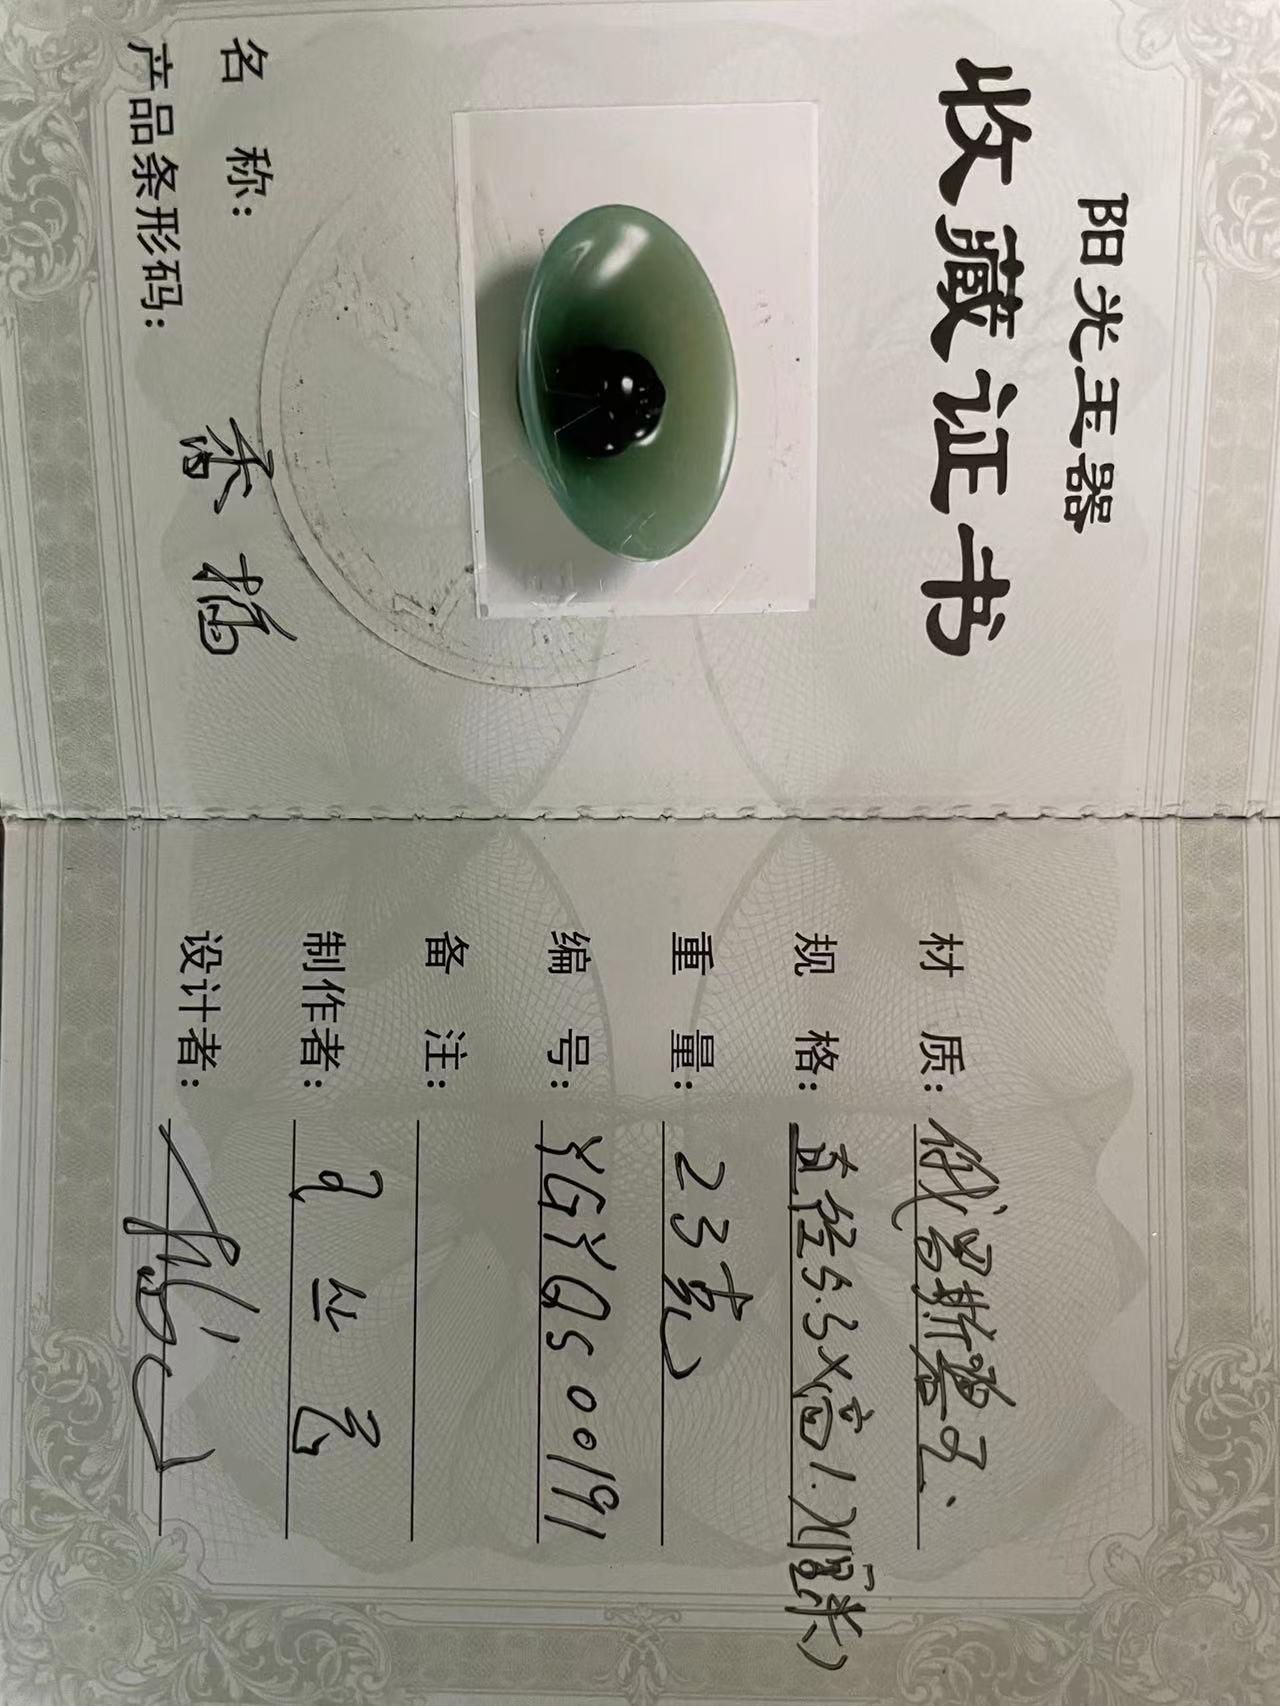 阳光玉器
收藏证书
名 称: 香插
产品条形码:
材 质: 俄罗斯碧玉.
规 格: 直径5.3×高1.2(厘米)
重 量: 23克
编 号: YGYQS00191
备 注:
制作者:
设计者: